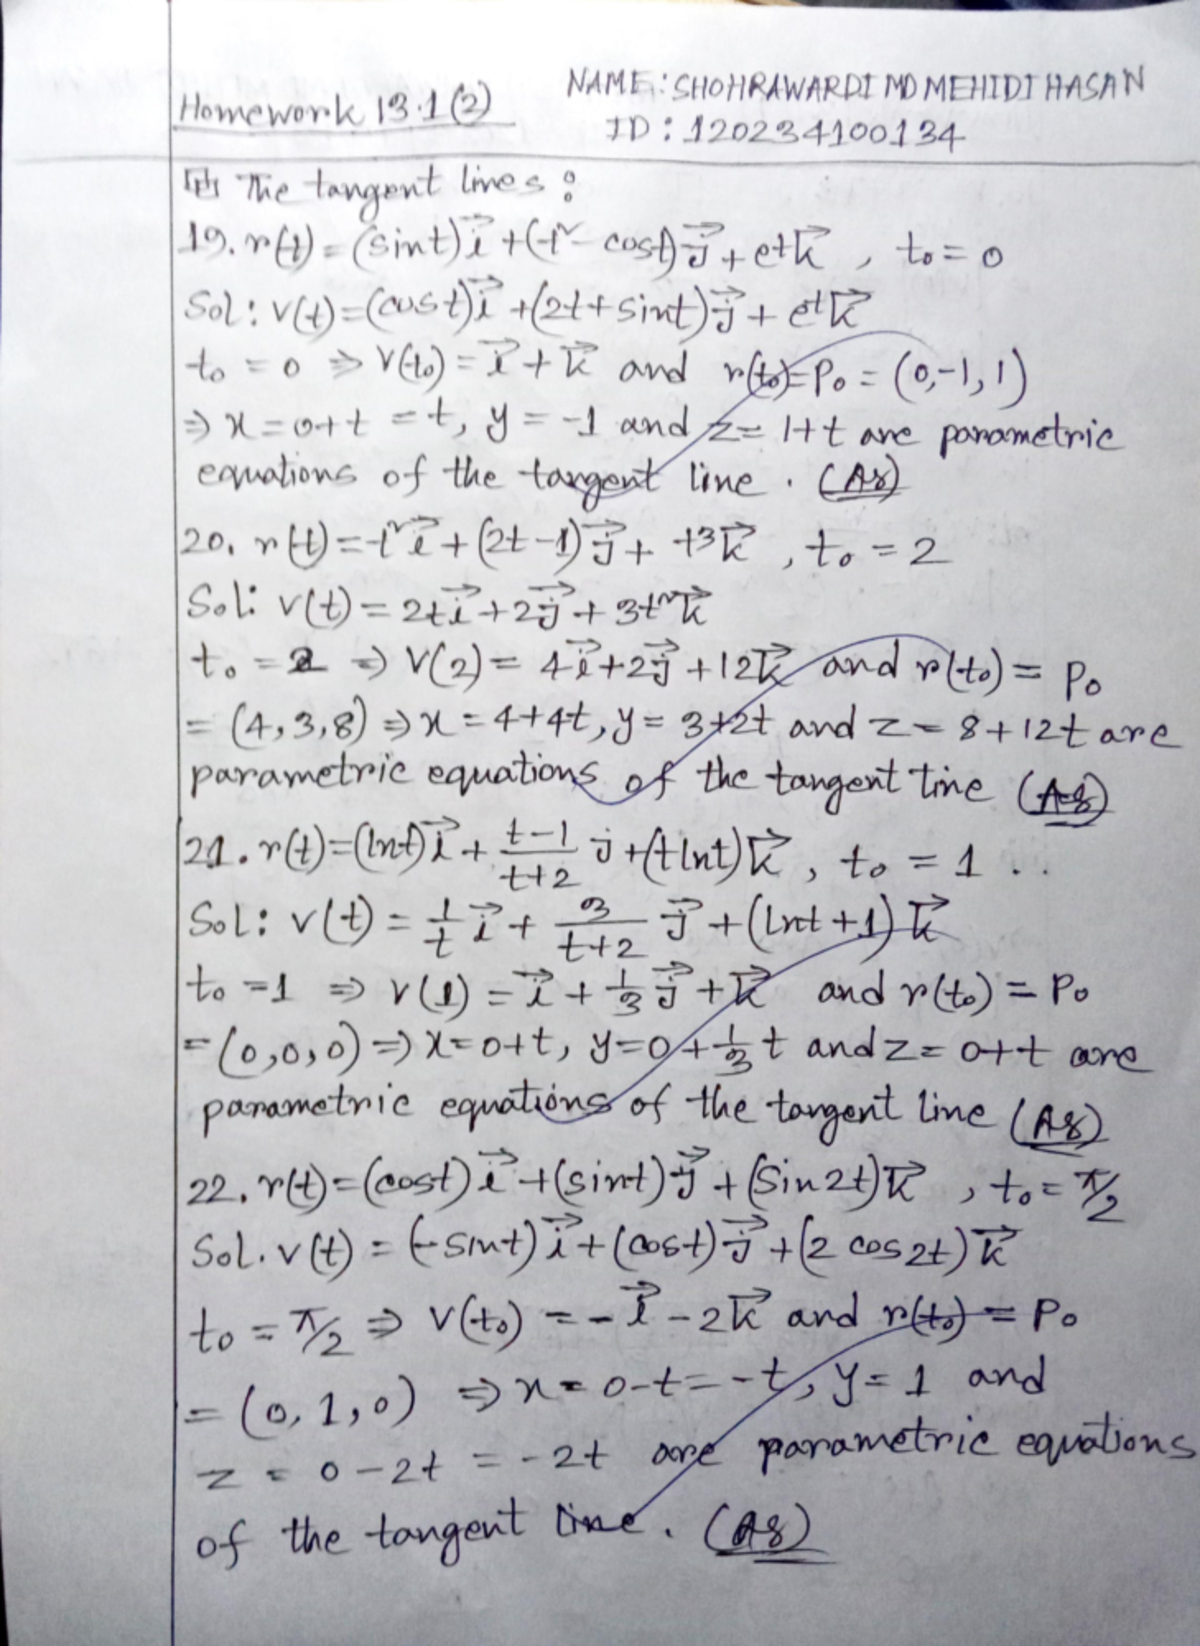 Homework 13.1(2)
NAME: SHOHRAWARDI MD MEHIDI HASAN
ID: 120234100134
The tangent lines:
19. r(t) = (sint)i⃗ + (t² - cost)j⃗ + etk⃗, t₀ = 0
Sol: v(t) = (cost)i⃗ + (2t + sint)j⃗ + eᵗk⃗
t₀ = 0 ⇒ v(t₀) = i⃗ + k⃗ and r(t₀) = P₀ = (0,-1,1)
⇒ x = 0+t = t, y = -1 and z = 1+t are parametric
equations of the tangent line. (As)
20. r(t) = t²i⃗ + (2t-1)j⃗ + t3k⃗, t₀ = 2
Sol: v(t) = 2ti⃗ + 2j⃗ + 3t²k⃗
t₀ = 2 ⇒ v(2) = 4i⃗ + 2j⃗ + 12k⃗ and r(t₀) = P₀
= (4,3,8) ⇒ x = 4+4t, y = 3+2t and z = 8+12t are
parametric equations of the tangent line (As)
21. r(t) = (lnt)i⃗ + t-1/t+2 j + (tlnt)k⃗, t₀ = 1 ..
Sol: v(t) = 1/t i⃗ + 3/t+2 j⃗ + (lnt+1)k⃗
t₀ = 1 ⇒ v(1) = i⃗ + 1/3 j⃗ + k⃗ and r(t₀) = P₀
= (0,0,0) ⇒ x = 0+t, y = 0 + 1/3 t and z = 0+t are
parametric equations of the tangent line (As)
22. r(t) = (cost)i⃗ + (sint)j⃗ + (Sin2t)k⃗, t₀ = π/2
Sol. v(t) = (-sint)i⃗ + (cost)j⃗ + (2 cos2t)k⃗
t₀ = π/2 ⇒ v(t₀) = -i⃗ - 2k⃗ and r(t₀) = P₀
= (0,1,0) ⇒ x = 0-t = -t, y = 1 and
z = 0-2t = -2t are parametric equations
of the tangent line. (As)